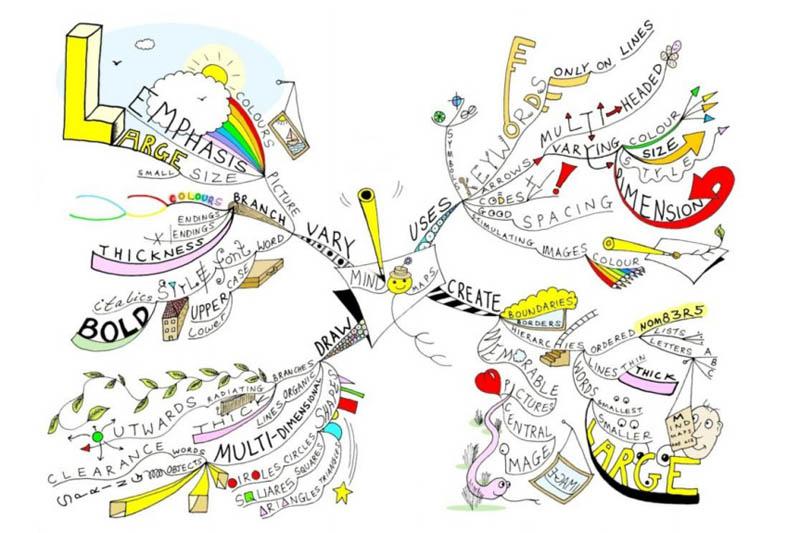 MIND
MAPS
VARY
PICTURE
EMPHASIS
COLOURS
LARGE
SMALL
SIZE
BRANCH
COLOURS
ENDINGS
ENDINGS
THICKNESS
WORD
font
STYLE
italics
BOLD
UPPER
CASE
LOWER
USES
SYMBOLS
KEYWORDS
ONLY ON LINES
ARROWS
MULTI-HEADED
VARYING
COLOUR
SIZE
STYLE
DIMENSION
CODES
GOOD
SPACING
STIMULATING IMAGES
COLOUR
CREATE
BOUNDARIES
BORDERS
HIERARCHIES
ORDERED
NOM83R5
LISTS
LETTERS
A
B
C
LINES
THIN
THICK
WORDS
SMALLEST
SMALLER
LARGE
MIND
MAPS
MEMORABLE
PICTURES
CENTRAL
IMAGE
IMAGE
DRAW
BRANCHES
RADIATING
OUTWARDS
ORGANIC
LINES
THICK
MULTI-DIMENSIONAL
SHAPES
CIRCLES
CIRCLES
SQUARES
SQUARES
TRIANGLES
WORDS
CLEARANCE
OBJECTS
SPACING